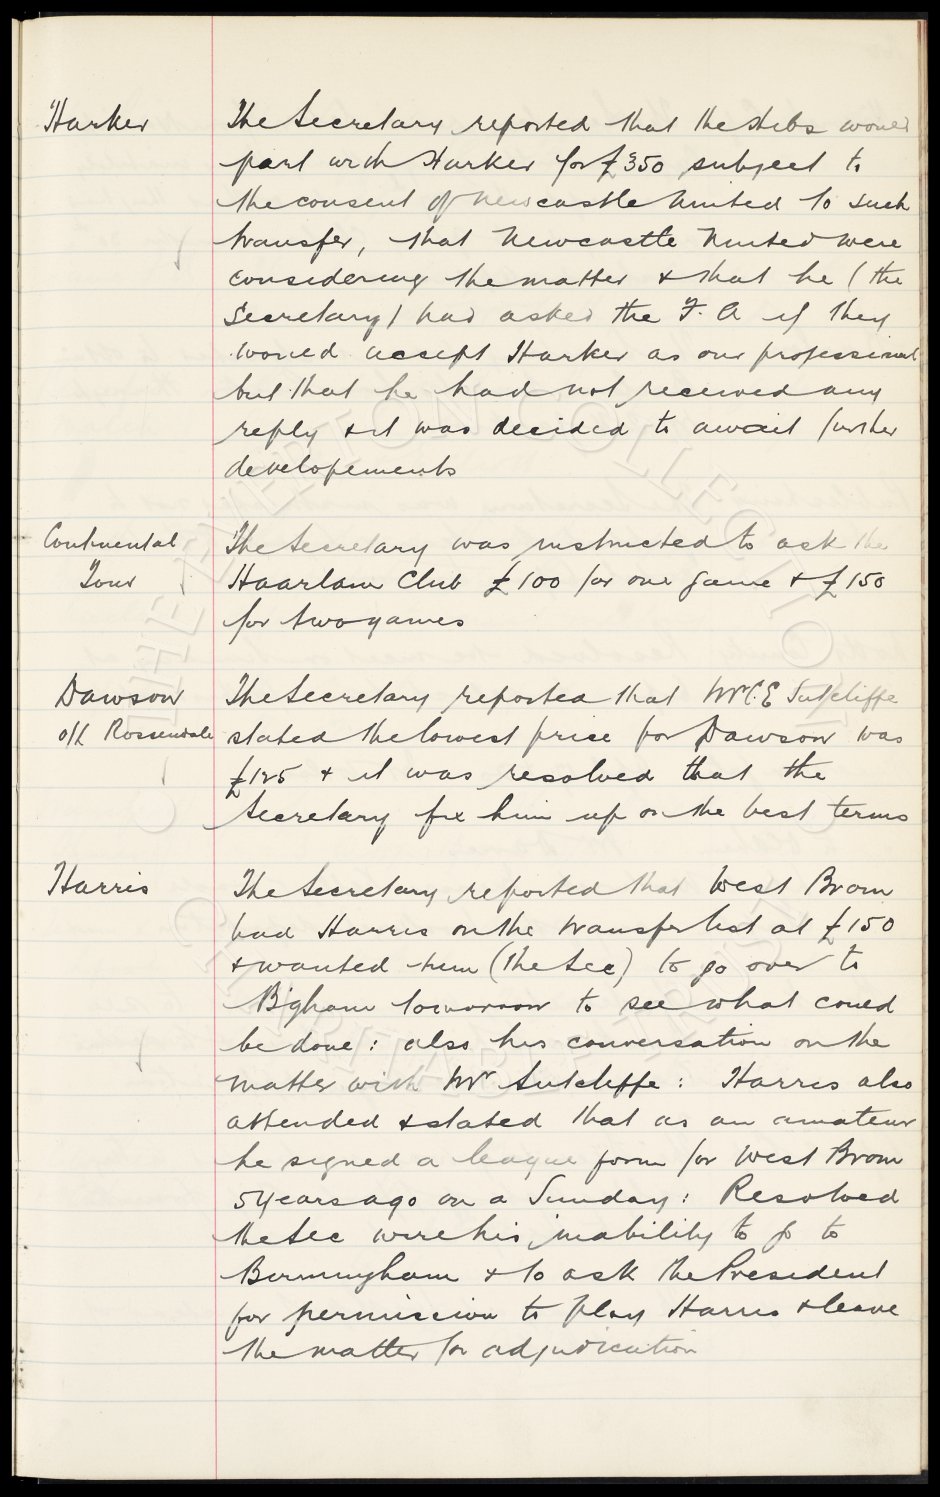 Harker
The Secretary reported that the Hibs would
part with Harker for £350 subject to
the consent of Newcastle United to such
transfer, that Newcastle United were
considering the matter & that he (the
Secretary) had asked the F. A if they
would accept Harker as our professional
but that he had not received any
reply & it was decided to await further
developements
Continental
Tour
The Secretary was instructed to ask the
Haarlam Club £100 for one game & £150
for two games
Dawson
o/l Rossendale
The Secretary reported that Mr C.E Sutcliffe
stated the lowest price for Dawson was
£125 & it was resolved that the
Secretary fix him up on the best terms
Harris
The Secretary reported that West Brom
had Harris on the transfer list at £150
& wanted him (the Sec) to go over to
B'gham tomorrow to see what could
be done : also his conversation on the
matter with Mr Sutcliffe : Harris also
attended & stated that as an amateur
he signed a league form for West Brom
5 years ago on a Sunday : Resolved
the Sec wire his inability to go to
Birmingham & to ask the President
for permission to play Harris & leave
the matter for adjudication